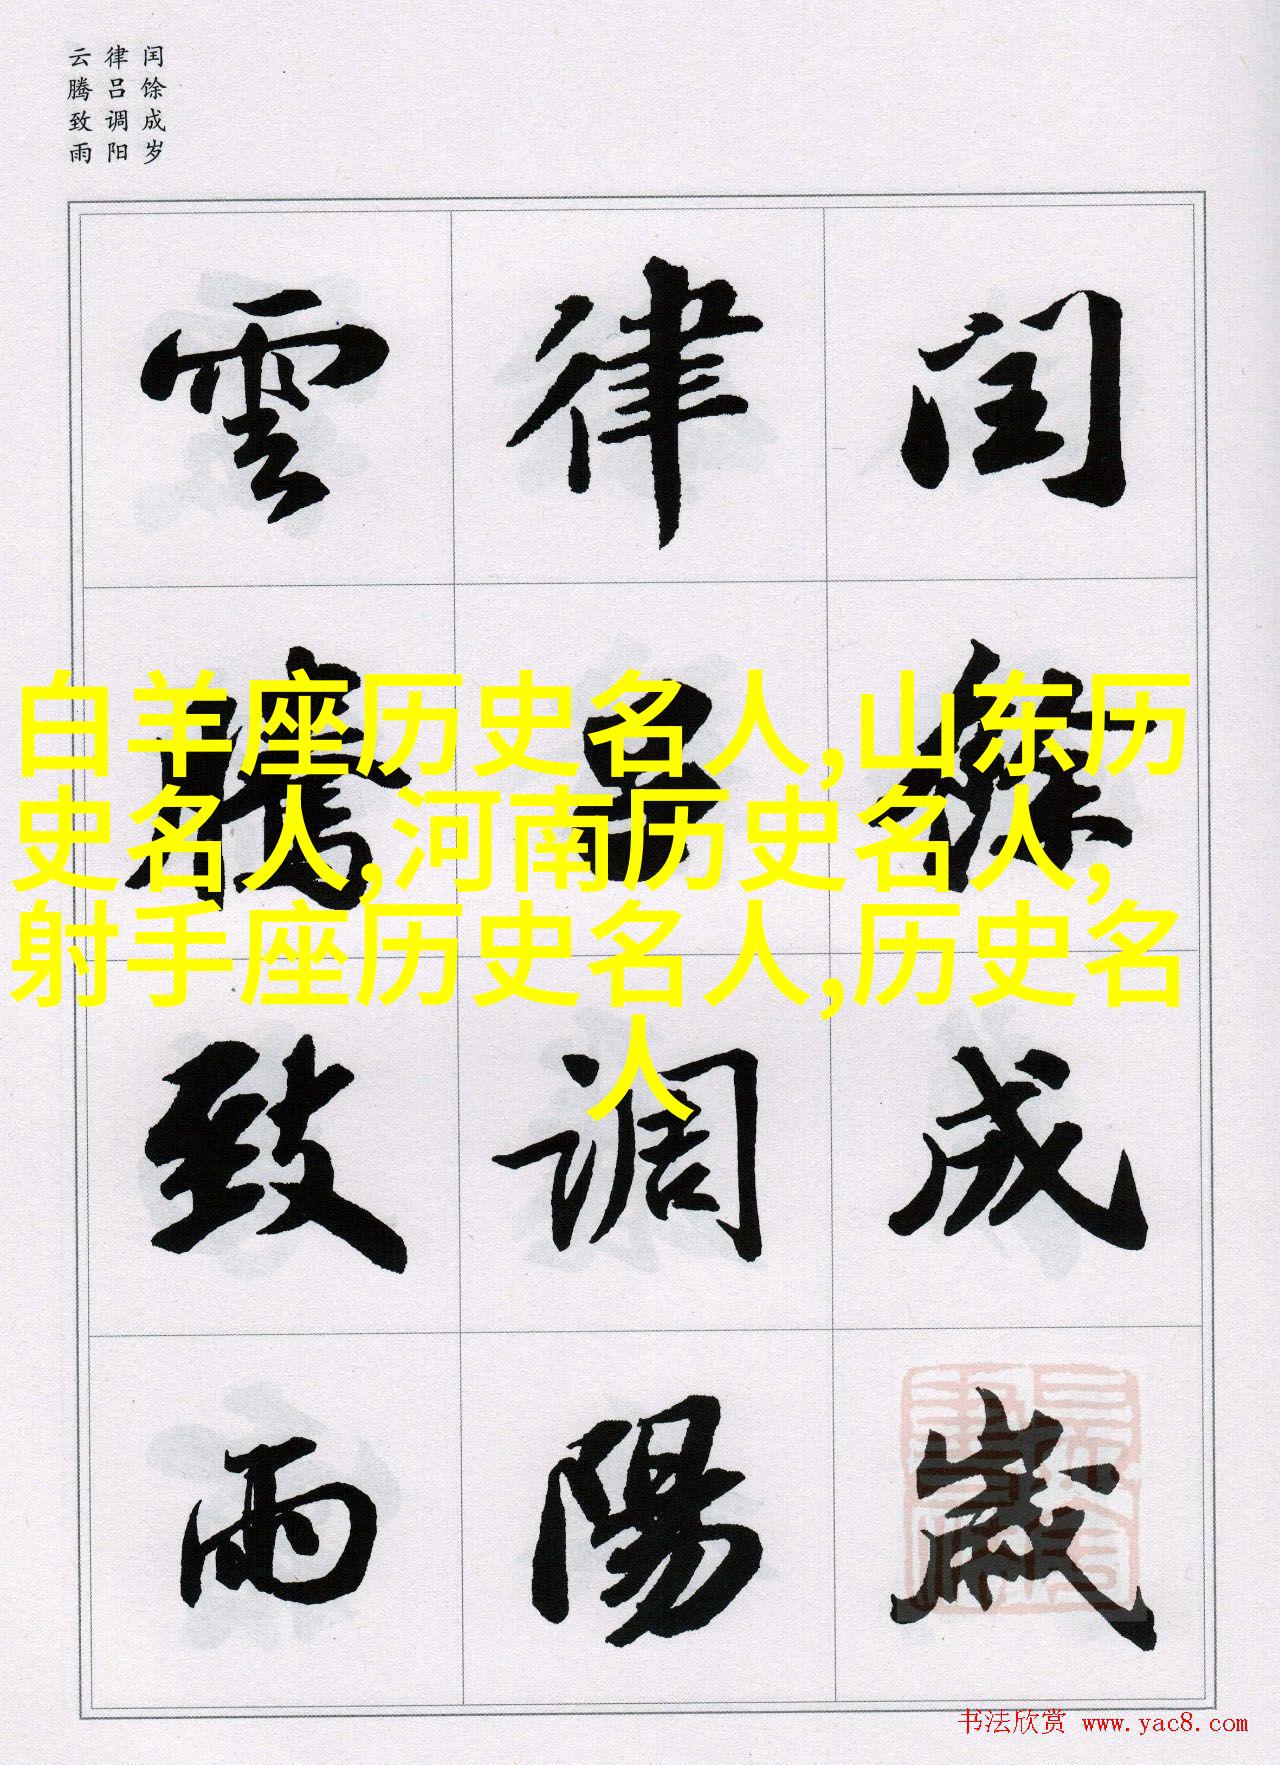 闰馀成岁
律吕调阳
云腾致雨
閏餘成歲
律呂調陽
雲騰致雨
白羊座历史名人,山东历
史名人,河南历史名人,
射手座历史名人,历史名
人
书法欣赏 www.yac8.com